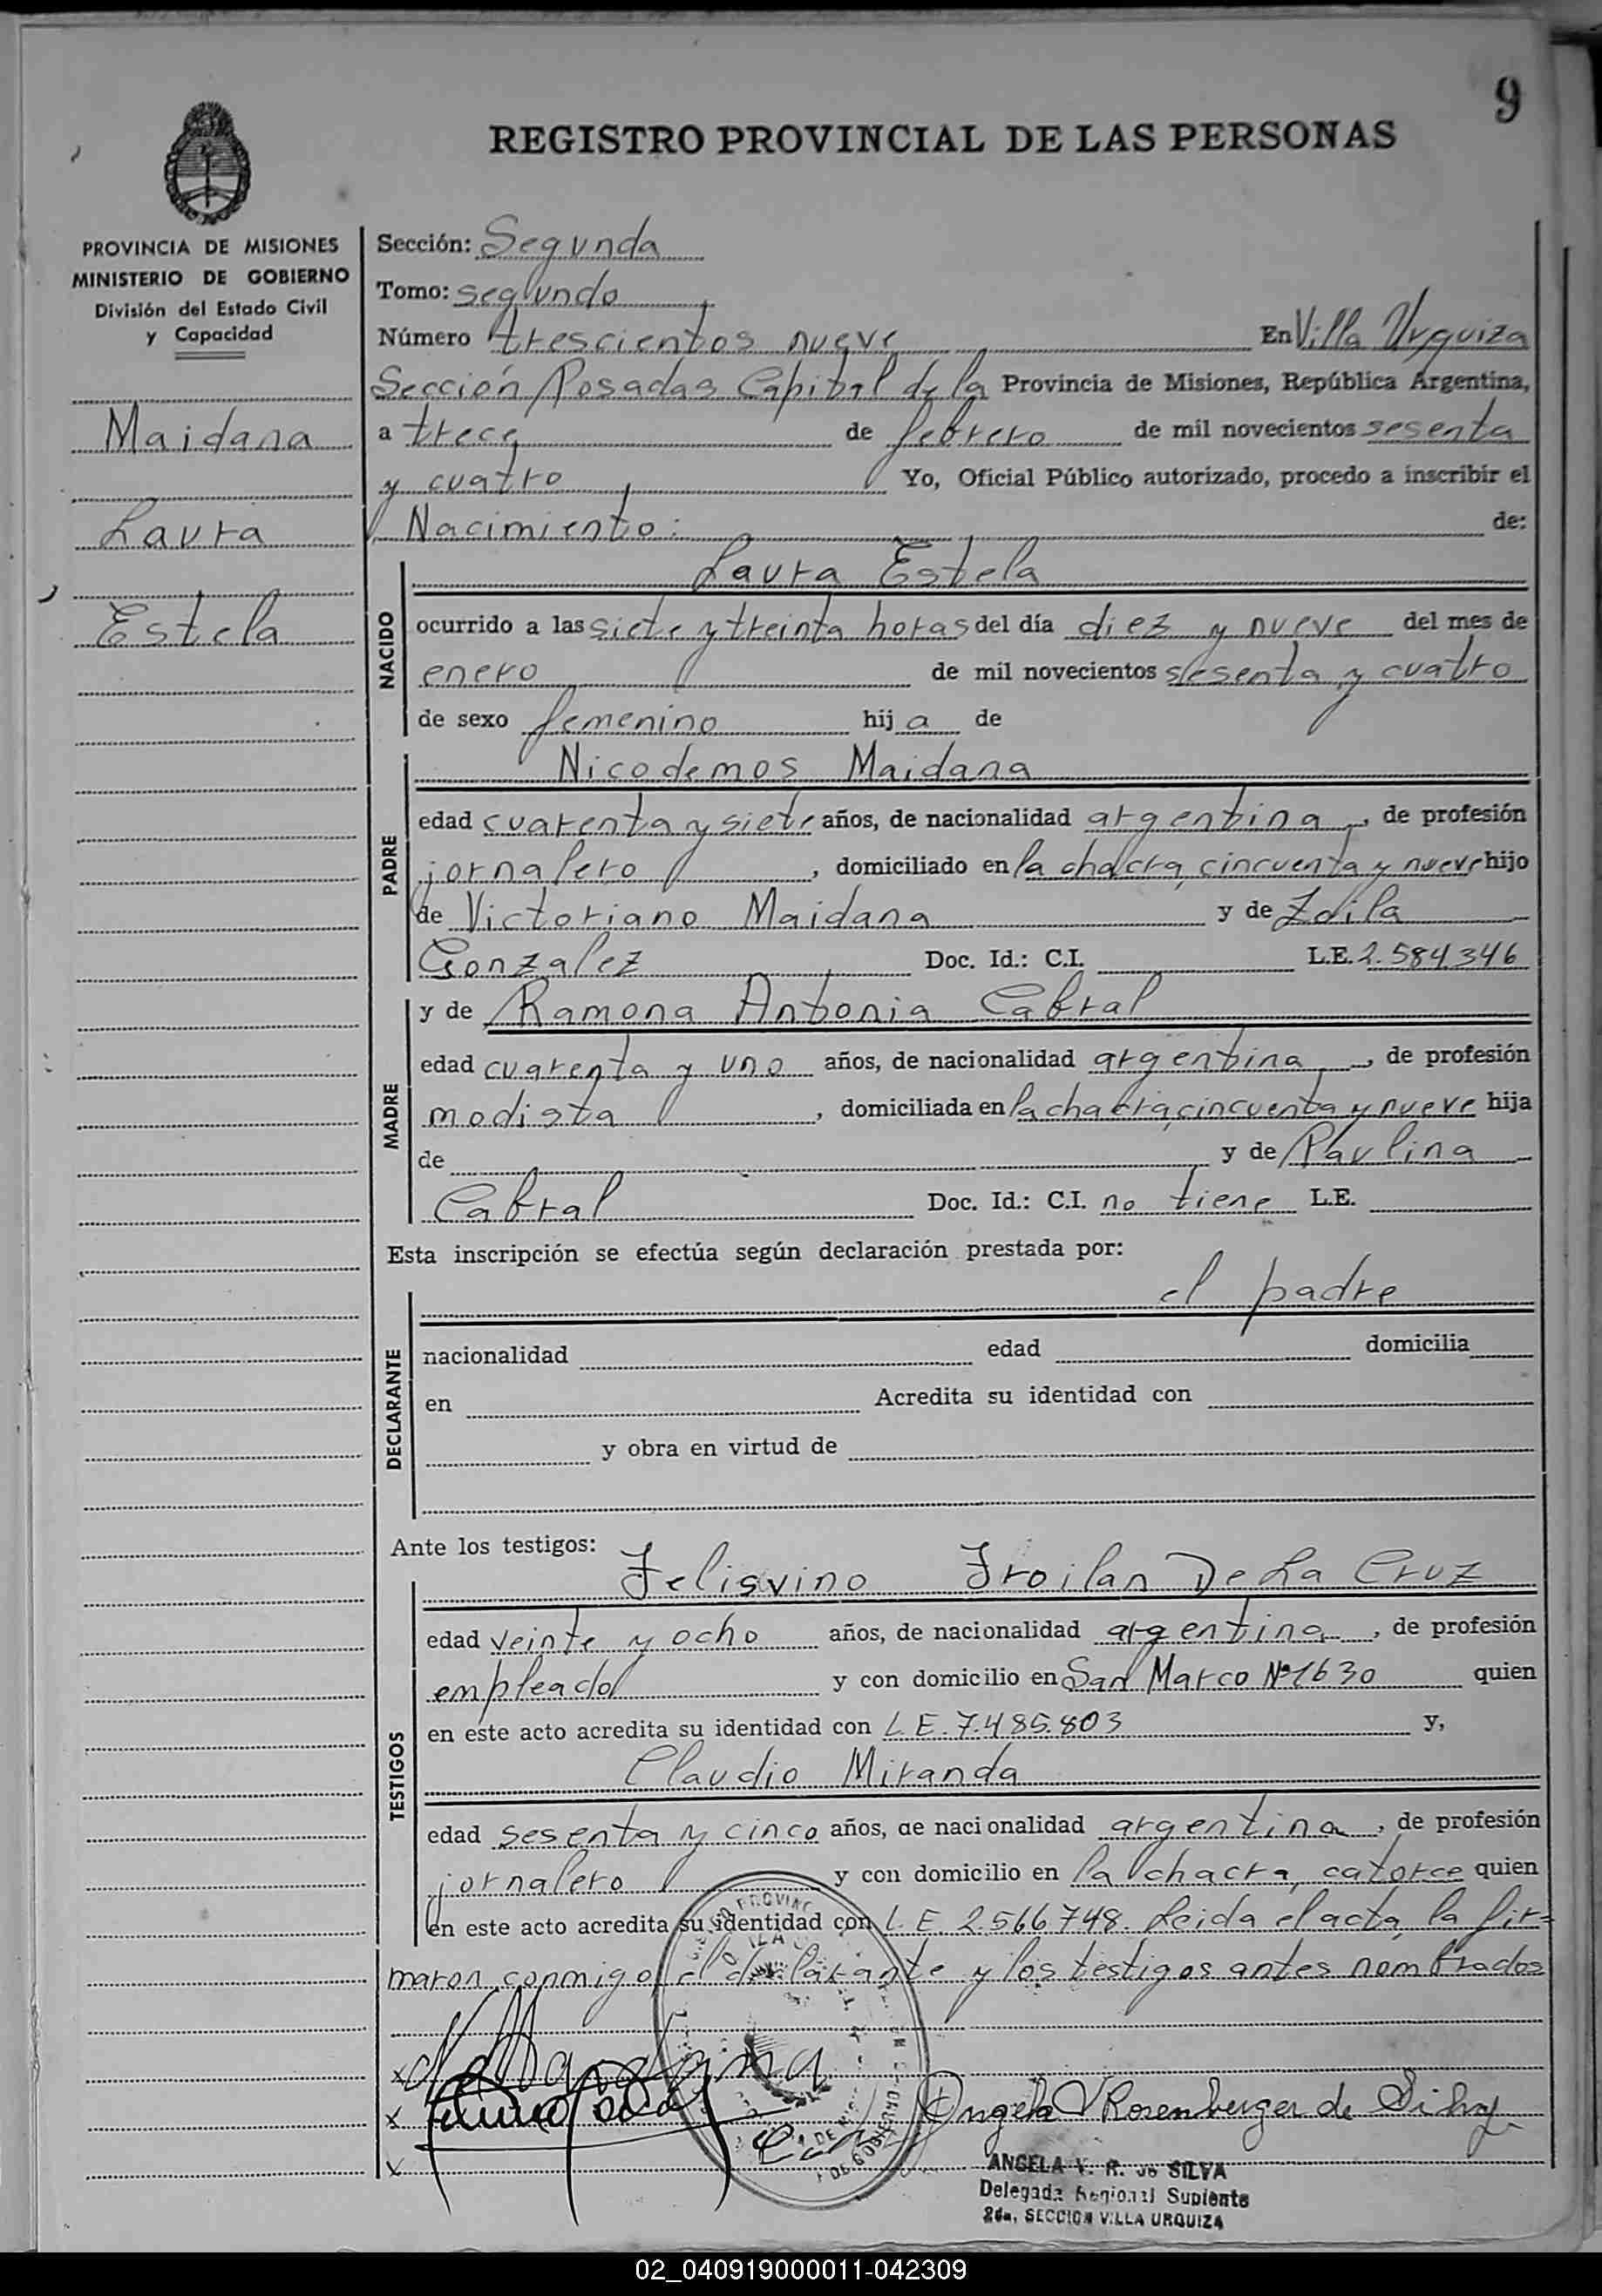 9
REGISTRO PROVINCIAL DE LAS PERSONAS
PROVINCIA DE MISIONES
MINISTERIO DE GOBIERNO
División del Estado Civil
y Capacidad
Maidana
Laura
Estela
Sección: Segunda
Tomo: segundo
Número trescientos nueve En Villa Urquiza
Sección Posadas Capital de la Provincia de Misiones, República Argentina,
a trece de febrero de mil novecientos sesenta
y cuatro Yo, Oficial Público autorizado, procedo a inscribir el
Nacimiento: de:
Laura Estela
NACIDO
ocurrido a las siete y treinta horas del día diez y nueve del mes de
enero de mil novecientos sesenta y cuatro
de sexo femenino hija de
Nicodemos Maidana
PADRE
edad cuarenta y siete años, de nacionalidad argentina, de profesión
jornalero, domiciliado en la chacra cincuenta y nueve hijo
de Victoriano Maidana y de Zoila
Gonzalez Doc. Id.: C.I. L.E. 2.584346
y de Ramona Antonia Cabral
MADRE
edad cuarenta y uno años, de nacionalidad argentina, de profesión
modista, domiciliada en la chacra cincuenta y nueve hija
de y de Paulina
Cabral Doc. Id.: C.I. no tiene L.E.
Esta inscripción se efectúa según declaración prestada por:
el padre
DECLARANTE
nacionalidad edad domicilia
en Acredita su identidad con
y obra en virtud de
Ante los testigos:
Felisvino Froilan De La Cruz
TESTIGOS
edad veinte y ocho años, de nacionalidad argentina, de profesión
empleado y con domicilio en San Marco Nº 1630 quien
en este acto acredita su identidad con L.E. 7.485.803 y,
Claudio Miranda
edad sesenta y cinco años, de nacionalidad argentina, de profesión
jornalero y con domicilio en la chacra catorce quien
en este acto acredita su identidad con L.E. 2.566.748. Leida el acta, la fir=
maron conmigo, el declarante y los testigos antes nombrados
Angela V Rosenberger de Silva
ANGELA V. R. de SILVA
Delegada Regional Suplente
2da. SECCION VILLA URQUIZA
02_040919000011-042309